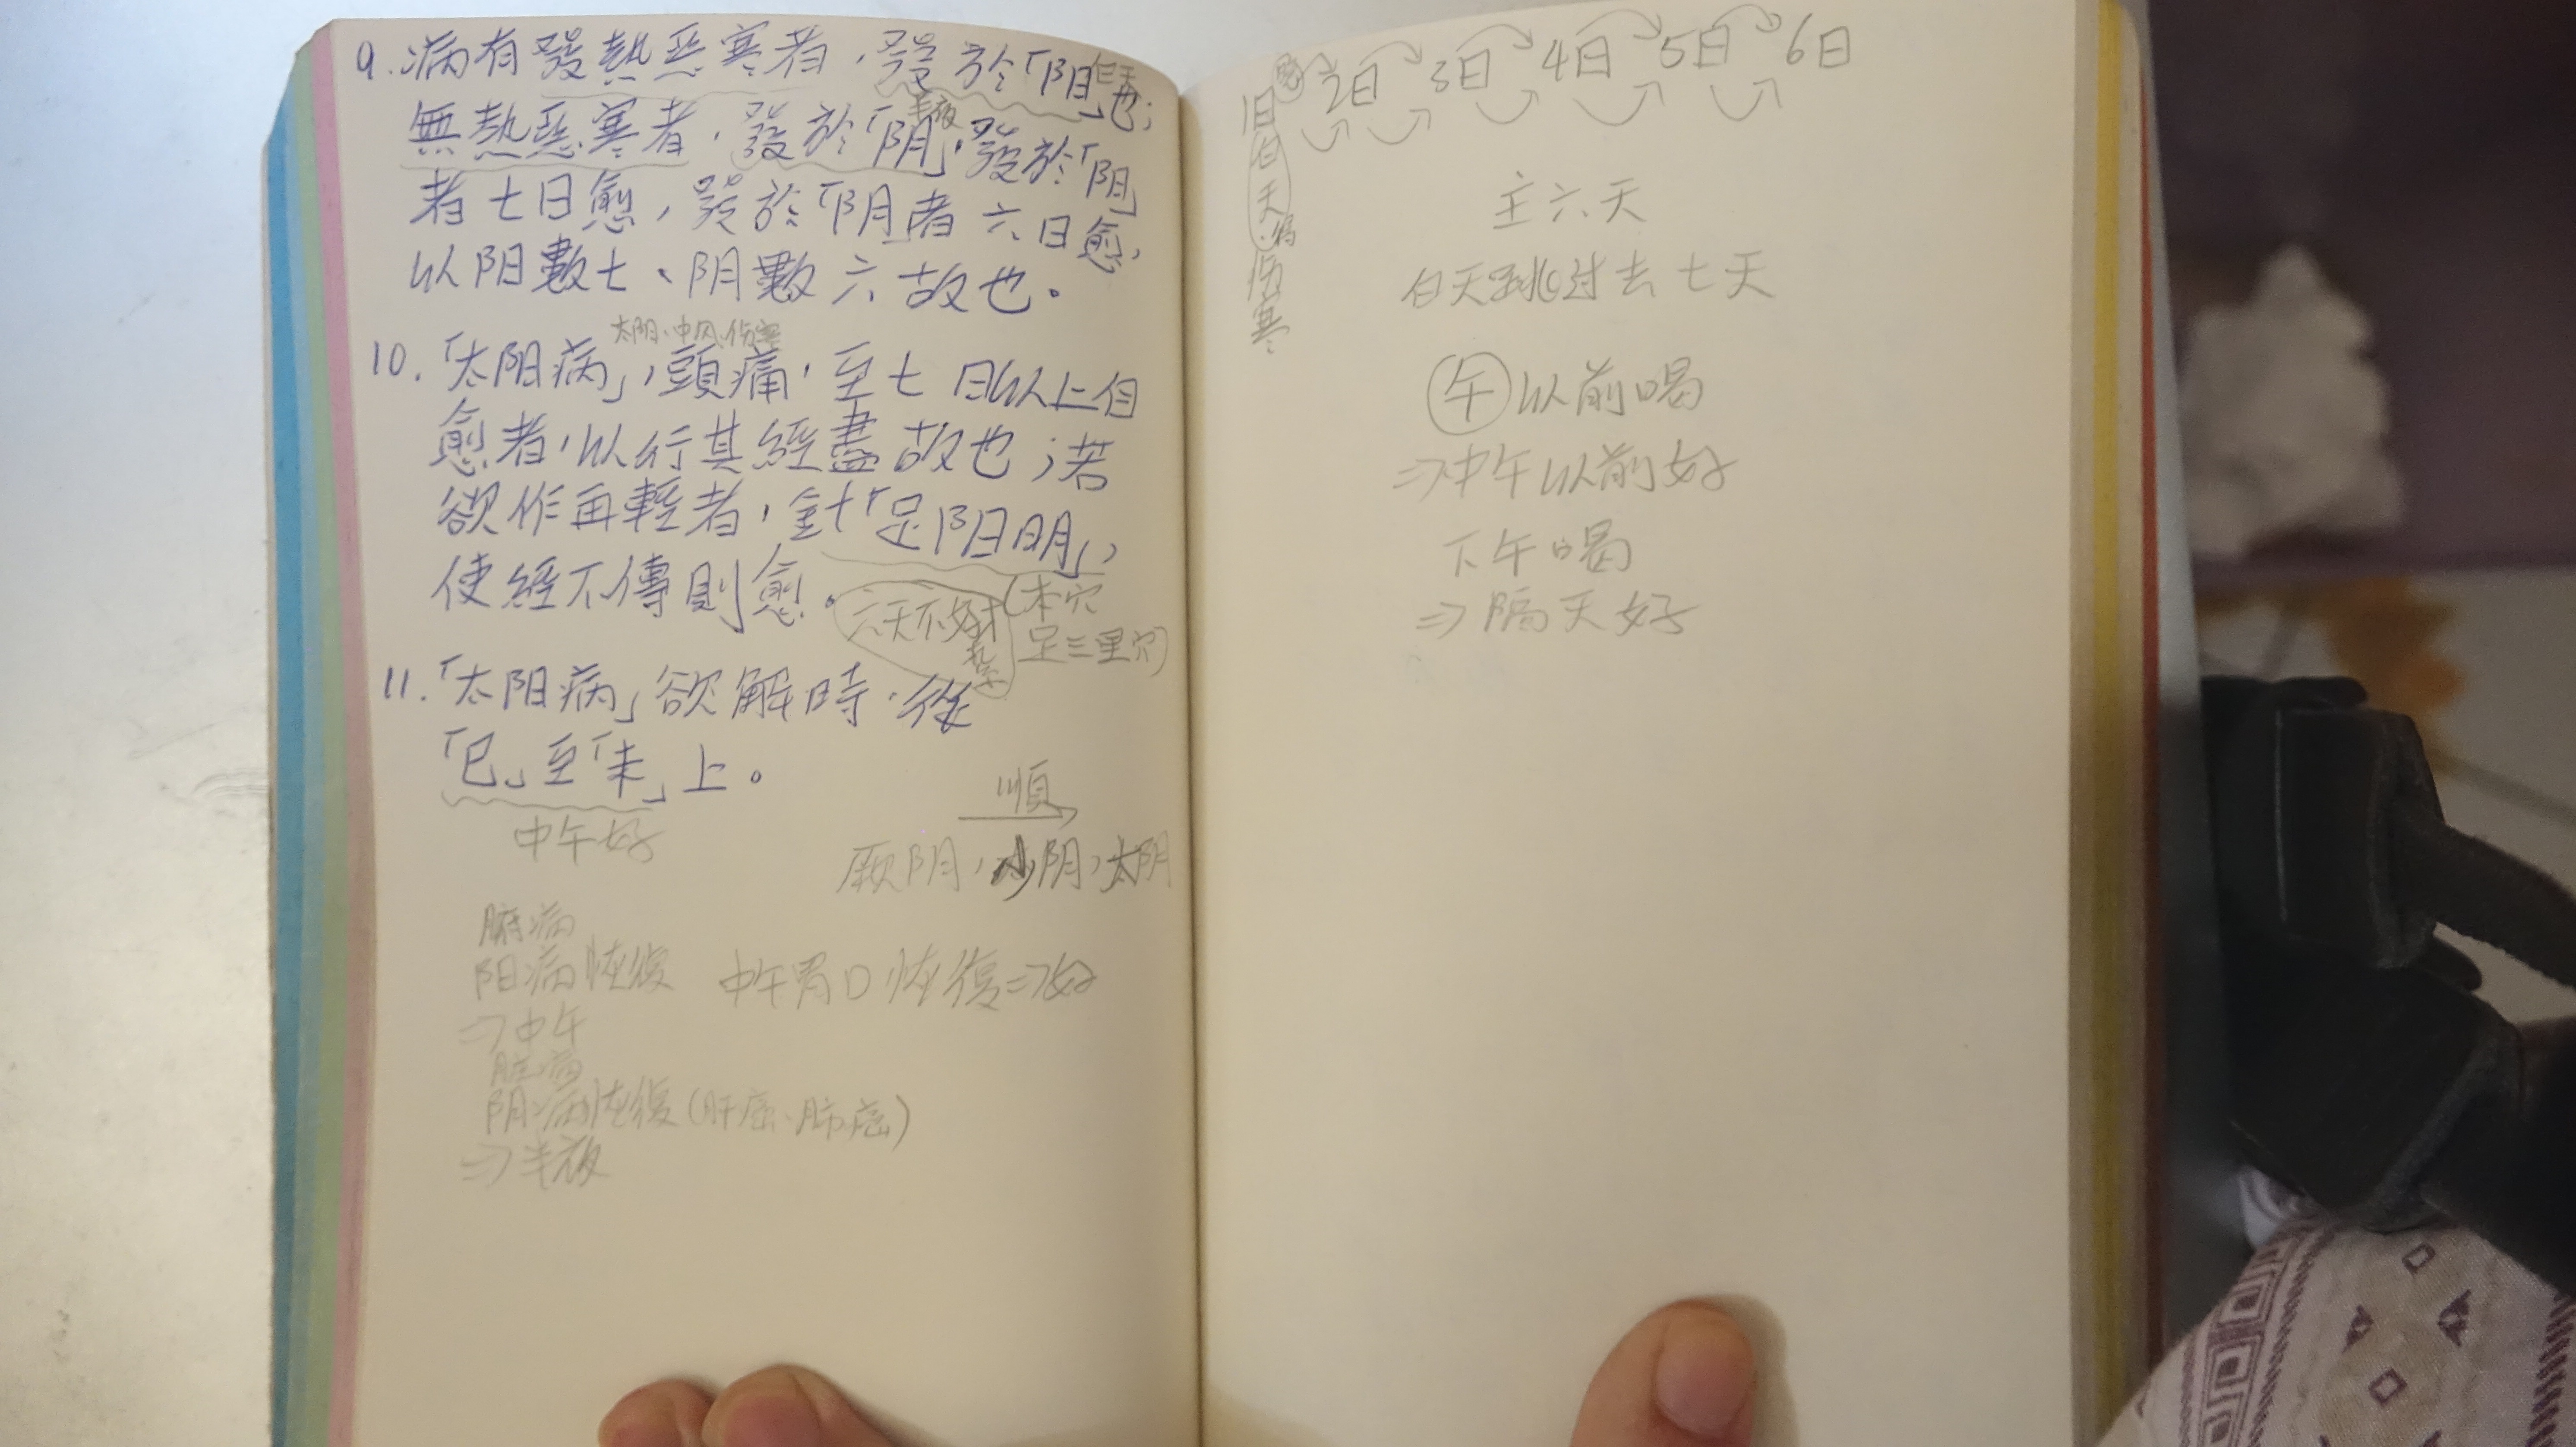 9. 病有發熱惡寒者，發於「阳」也；
白天
無熱惡寒者，發於「阴」，發於「阳」
半夜
者七日愈，發於「阴」者六日愈，
以阳數七、阴數六故也。
太阳、中风、伤寒
10.「太阳病」，頭痛，至七日以上自
愈者，以行其經盡故也；若
欲作再輕者，針「足阳明」，
使經不傳則愈。
六天不好才
(本穴
足三里穴)
11.「太阳病」欲解時，從
「巳」至「未」上。
中午好
順
厥阴，少阴，太阴
腑病
阳病恢復
⇒中午
中午胃口恢復⇒好
脏病
阴病恢復(肝癌、肺癌)
⇒半夜
1日 2日 3日 4日 5日 6日
白天
伤寒
主六天
白天跳过去七天
午以前喝
⇒中午以前好
下午喝
⇒隔天好